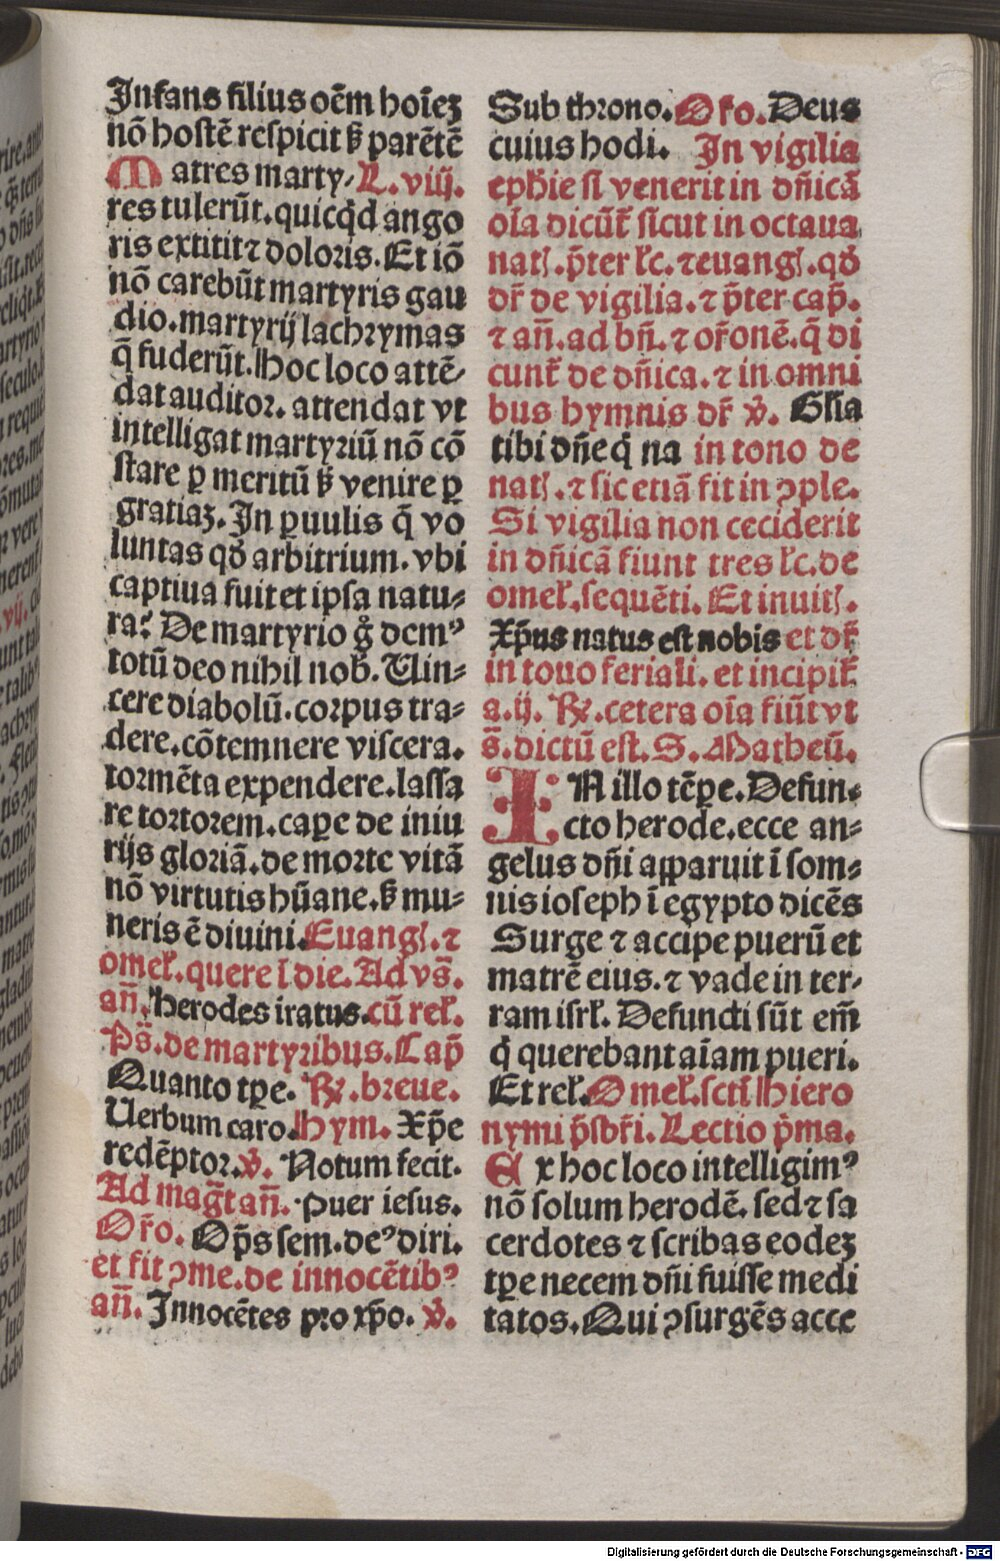 Infans filius oēm hoīeꝫ
nō hostē respicit ꝸ parētē
Matres marty⸗ L. viij.
res tulerūt. quicq̄d ango
ris extitit ⁊ doloris. Et iō
nō carebūt martyris gau
dio. martyrij lachrymas
q̄ fuderūt. Hoc loco attē⸗
dat auditor. attendat vt
intelligat martyriū nō cō
stare ꝑ meritū ꝸ venire ꝑ
gratiaꝫ. In ꝑuulis q̄ vo
luntas qđ arbitrium. vbi
captiua fuit et ipsa natu⸗
ra? De martyrio g̊ dcmꝰ
totū deo nihil nob̄. Uin⸗
cere diabolū. corpus tra⸗
dere. cōtemnere viscera.
tormēta expendere. lassa
re tortorem. caꝑe de iniu
rijs gloriā. de morte vitā
nō virtutis hūane. ꝸ mu⸗
neris ē diuini. Euangꝭ. ⁊
omeł. quere ī die. Ad vs̄.
an̄. Herodes iratus. cū reł.
Ps̄. de martyribus. Cap̄
Quanto tꝑe. ℟. breue.
Uerbum caro. Hym. Xp̄e
redēptor. ℣. Notum fecit.
Ad mag̅t an̄. Puer iesus.
Or̄o. Op̄s sem. deꝰ diri.
et fit ꝯme. de innocētibꝰ
an̄. Innocētes pro xp̄o. ℣.
Sub throno. Or̄o. Deus
cuius hodi. In vigilia
eph̄ie si venerit in dn̄icā
oīa dicūt̄ sicut in octaua
natꝭ. p̄ter łc. ⁊ euangꝭ. qđ
dr̄ de vigilia. ⁊ p̄ter cap̄.
⁊ an̄. ad bn̄. ⁊ or̄onē. q̄ di
cunt̄ de dn̄ica. ⁊ in omni
bus hymnis dr̄ ℣. Glīa
tibi dn̄e q̇ na in tono de
natꝭ. ⁊ sic etiā fit in ꝯple.
Si vigilia non ceciderit
in dn̄icā fiunt tres łc. de
omeł. sequēti. Et inuitꝭ.
Xp̄us natus est nobis et dr̄
in touo feriali. et incipit̄
a. ij. ℟. cetera oīa fiūt vt
s̄. dictū est. S. Matheū.
IN illo tēꝑe. Defun⸗
cto herode. ecce an⸗
gelus dn̄i apparuit ī som⸗
nis ioseph ī egypto dicēs
Surge ⁊ accipe puerū et
matrē eius. ⁊ vade in ter⸗
ram isrł. Defuncti sūt em̄
q̇ querebant aīam pueri.
Et reł. Omeł. sctī Hiero
nymi p̄sbr̄i. Lectio p̄ma.
Ex hoc loco intelligimꝰ
nō solum herodē. sed ⁊ sa
cerdotes ⁊ scribas eodeꝫ
tꝑe necem dn̄i fuisse medi
tatos. Qui ꝯsurgēs acce
Digitalisierung gefördert durch die Deutsche Forschungsgemeinschaft - DFG